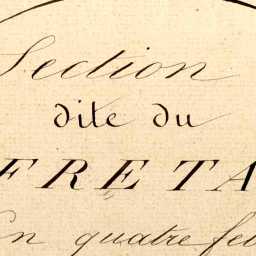 Section
dite du
FRETA
En quatre feu